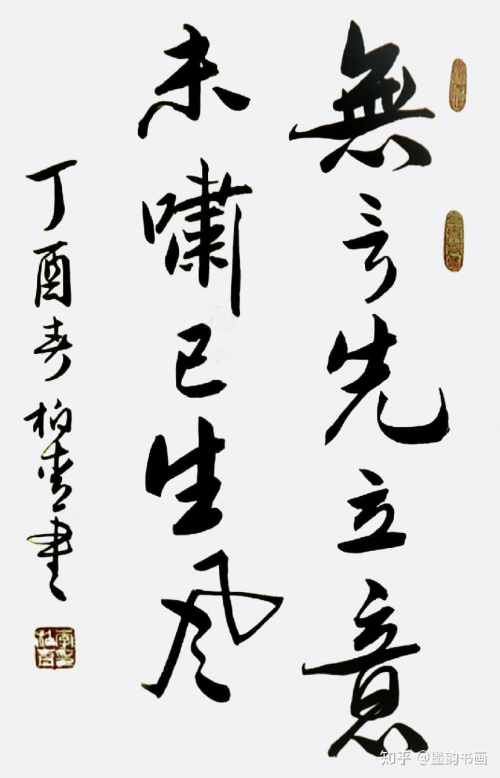 無言先立意
未嘯已生风
丁酉春柏青書
知乎 @墨韵书画